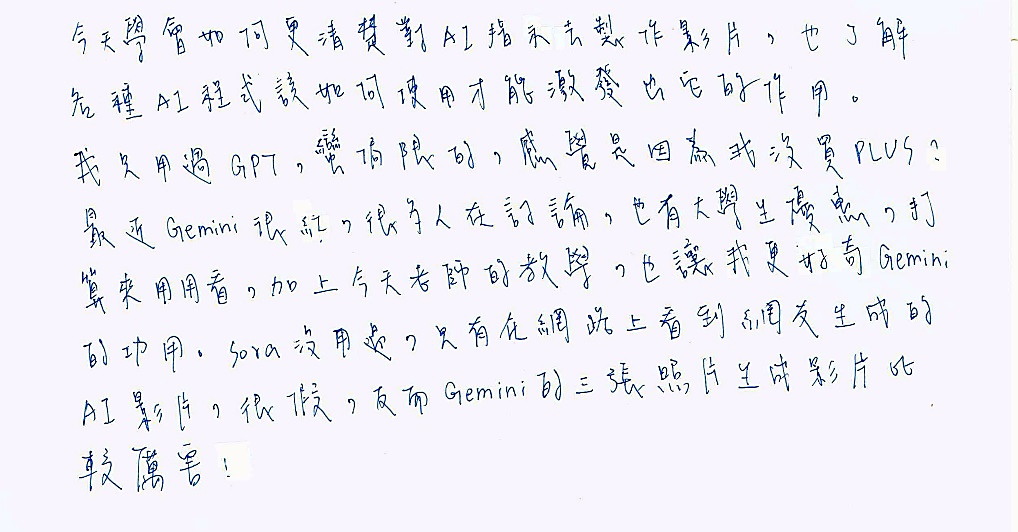 今天學會如何更清楚對AI指示去製作影片，也了解
各種AI程式該如何使用才能激發出它的作用。
我只用過GPT，蠻侷限的，感覺是因為我沒買PLUS？
最近Gemini很紅，很多人在討論，也有大學生優惠，打
算來用用看，加上今天老師的教學，也讓我更好奇Gemini
的功用。Sora沒用過，只有在網路上看到網友生成的
AI影片，很假，反而Gemini的三張照片生成影片比
較厲害！